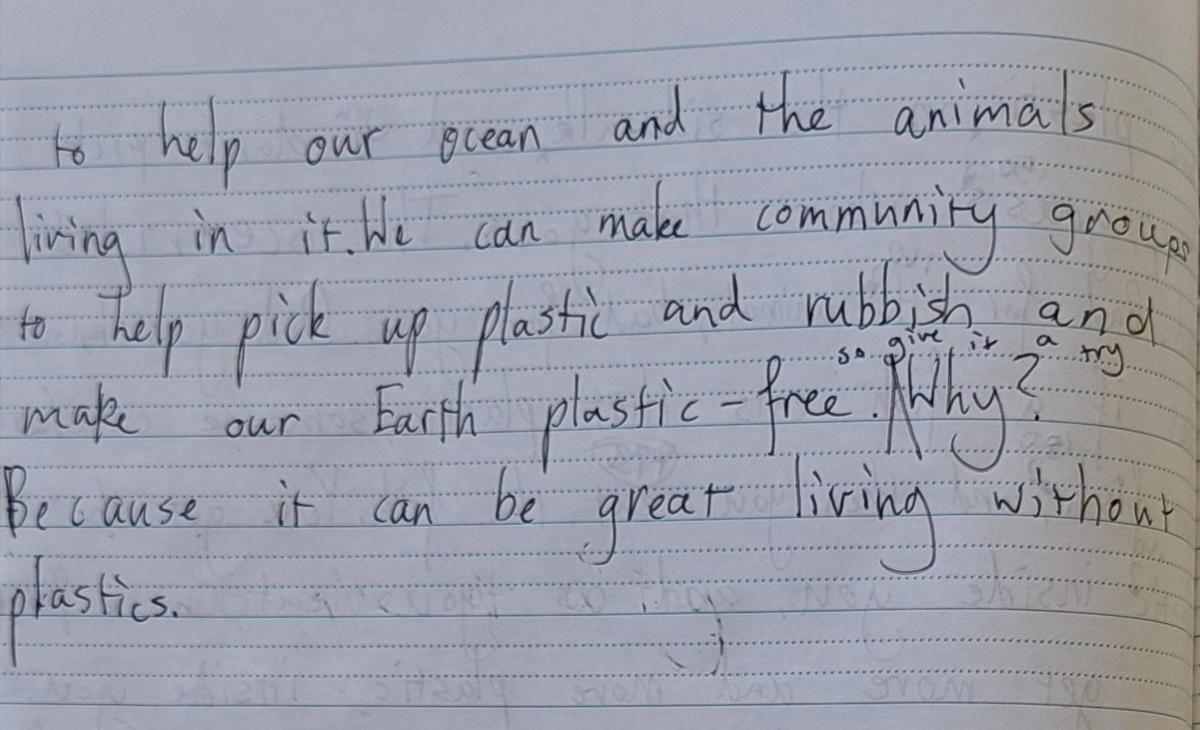 to help our ocean and the animals
living in it. We can make community groups
to help pick up plastic and rubbish and
so give it a try
make our Earth plastic-free. Why?
Because it can be great living without
plastics.